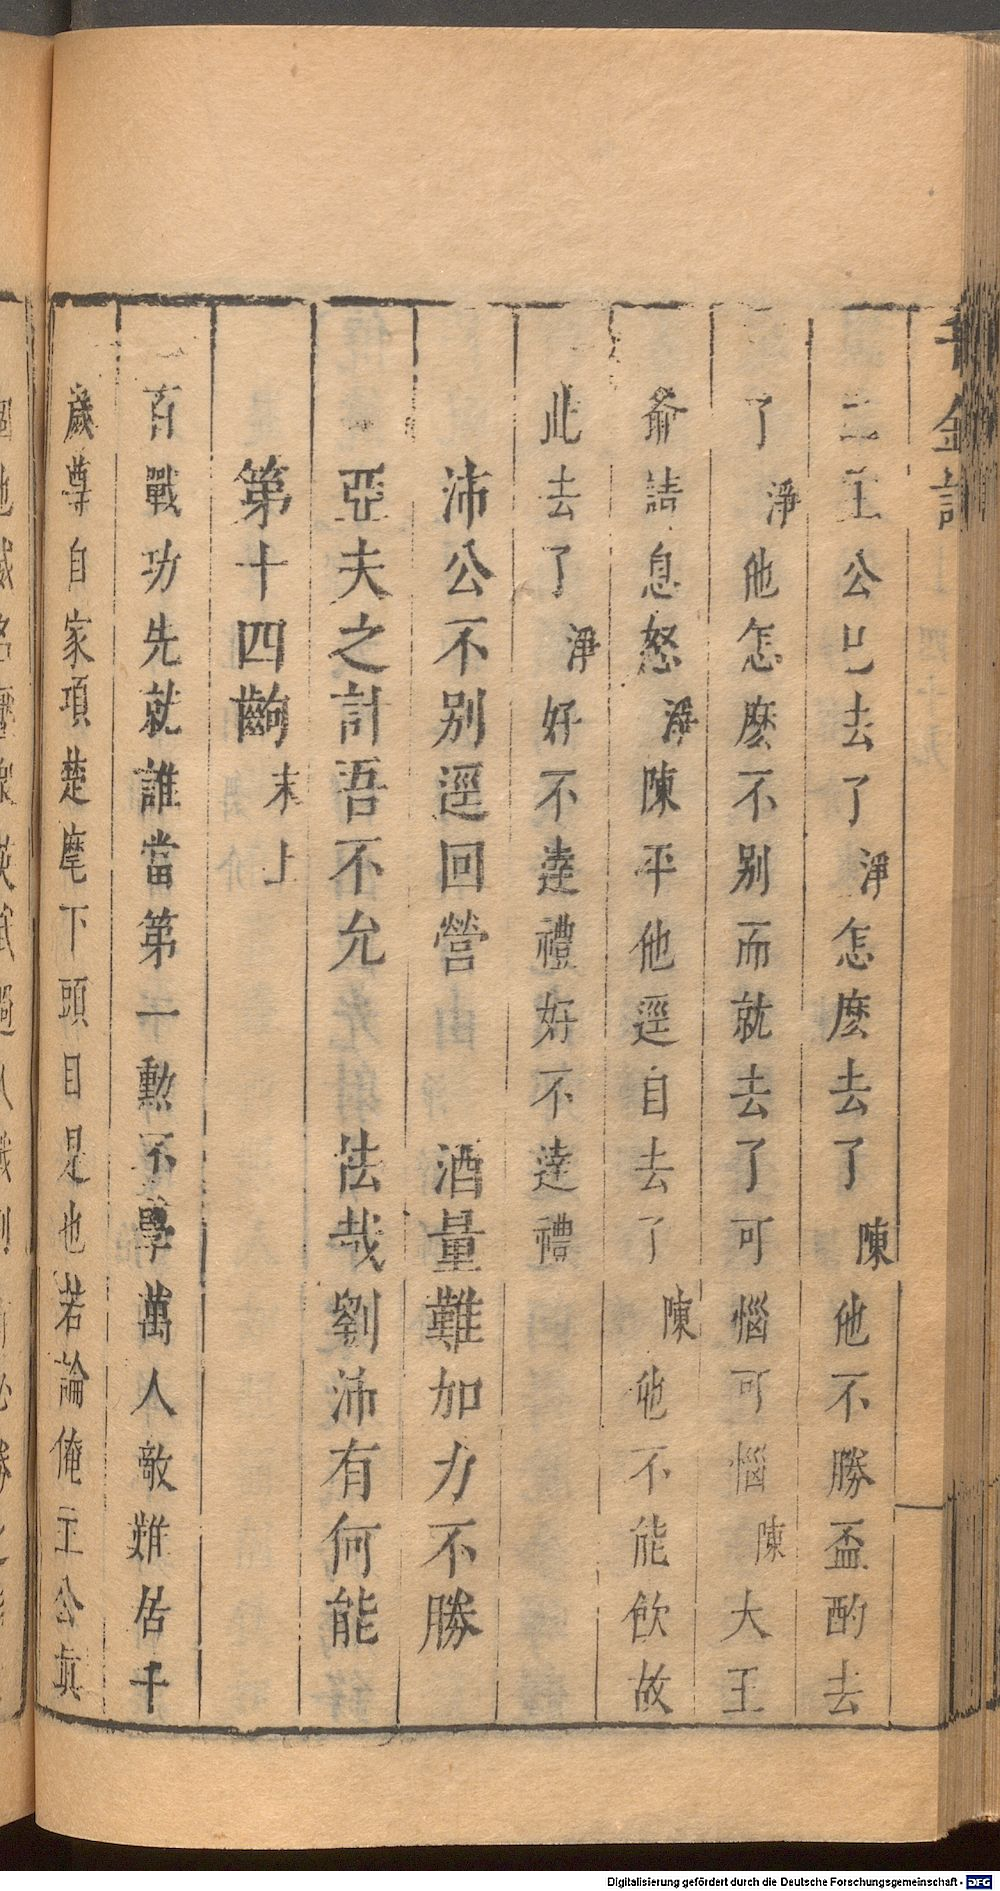 千金記
二王公已去了淨怎麽去了陳他不勝盃酌去
了淨他怎麽不別而就去了可惱可惱陳大王
爺請息怒淨陳平他逕自去了陳他不能飲故
此去了淨好不達禮好不達禮
沛公不別逕回營 酒量難加力不勝
亞夫之計吾不允 怯哉劉沛有何能
第十四齣末上
百戰功先就誰當第一勲不學萬人敵難居千
歲尊自家項楚麾下頭目是也若論俺主公眞
Digitalisierung gefördert durch die Deutsche Forschungsgemeinschaft - DFG